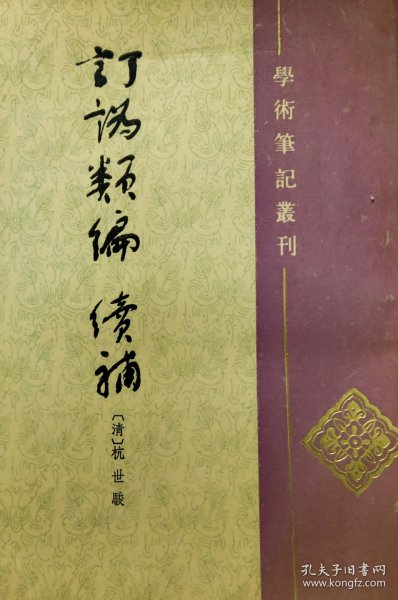 學術筆記叢刊
訂譌類編 續補
〔清〕杭世駿
孔夫子旧书网
www.kongfz.com